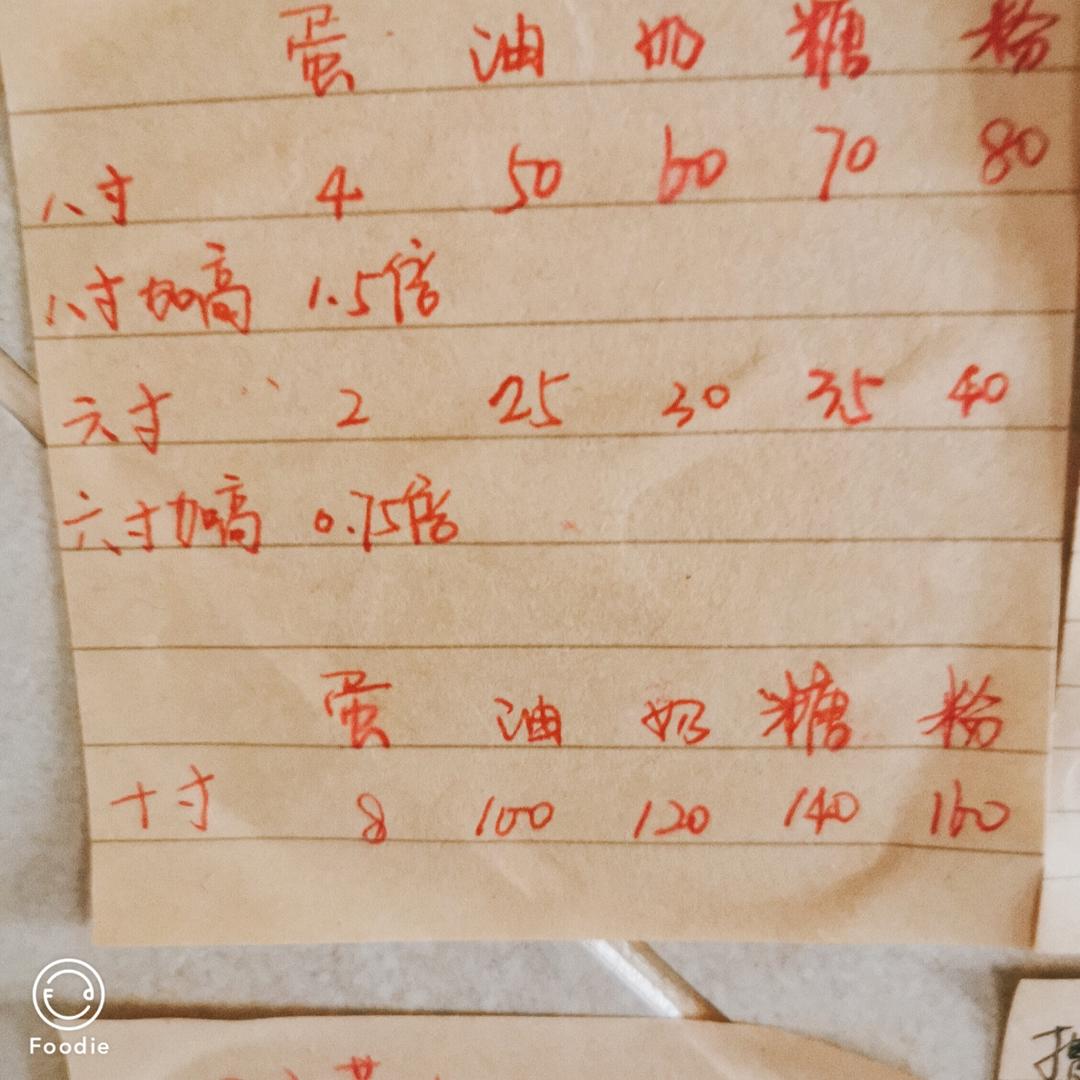 蛋 油 奶 糖 粉
八寸 4 50 60 70 80
八寸加高 1.5倍
六寸 2 25 30 35 40
六寸加高 0.75倍
蛋 油 奶 糖 粉
十寸 8 100 120 140 160
Foodie